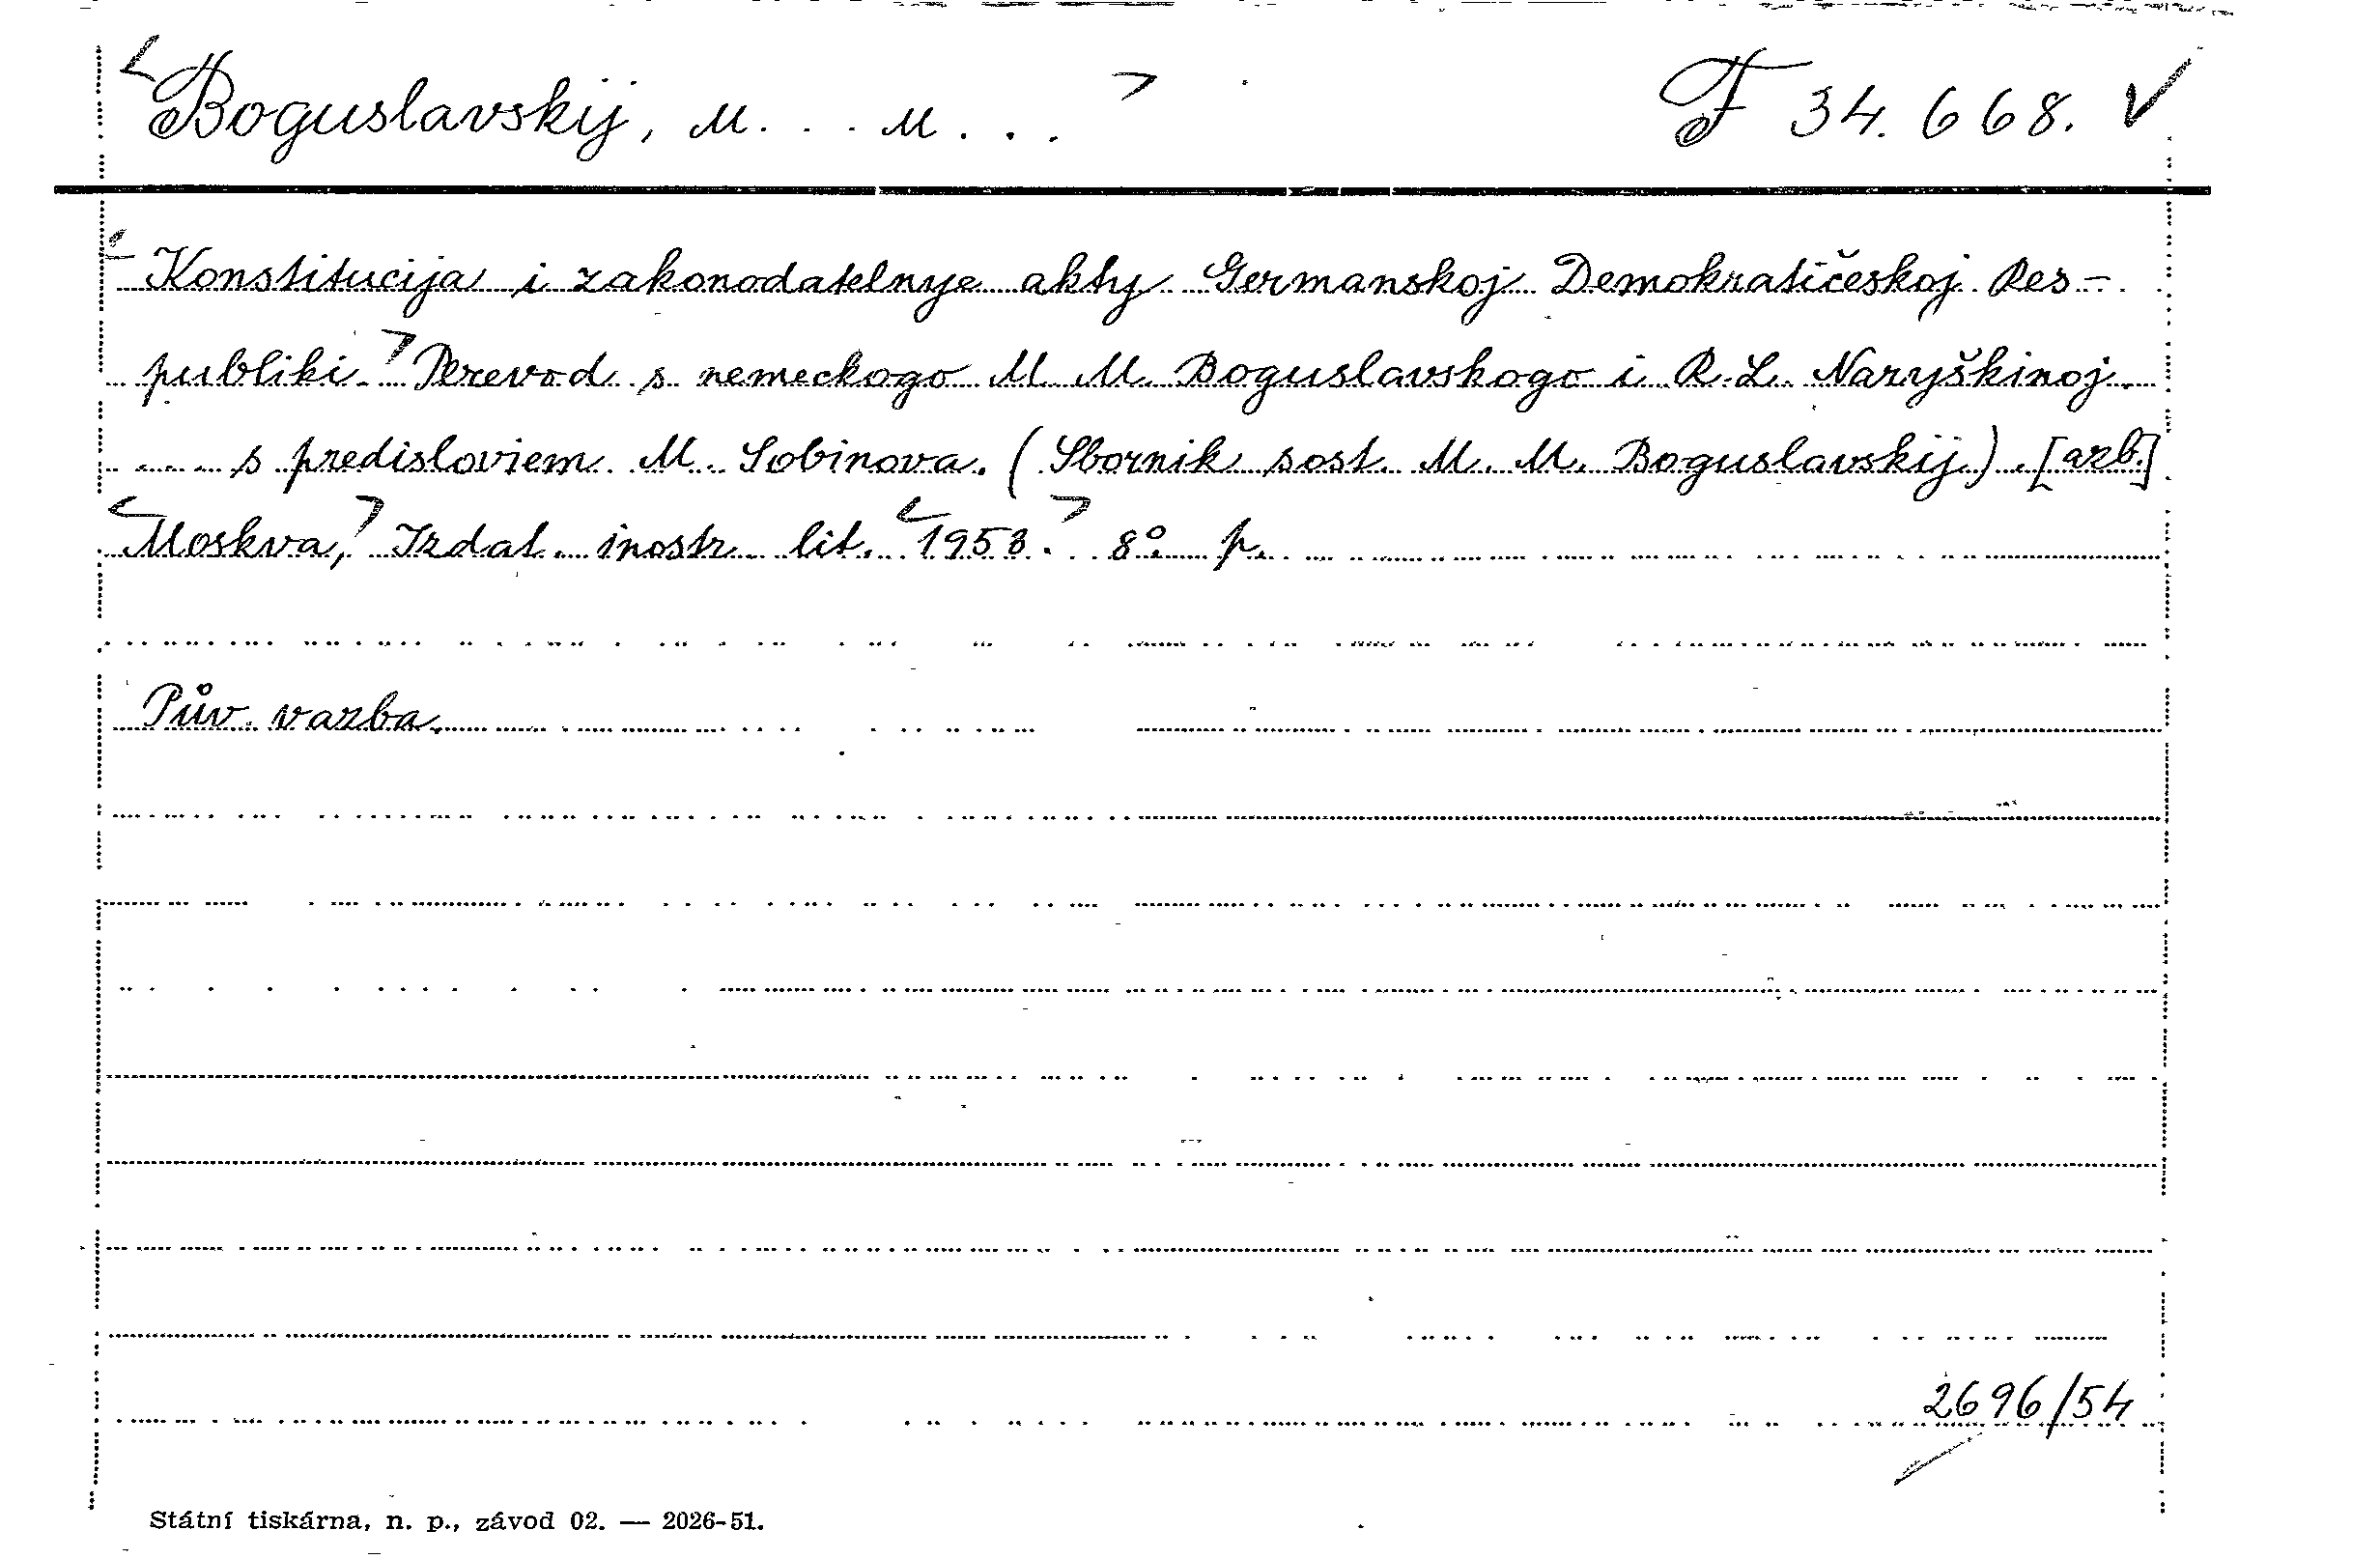 Boguslavskij, M. . . M. . . F 34.668.
Konstitucija i zakonodatelnye akty Germanskoj Demokratičeskoj Res-
publiki. Perevod s nemeckogo M. M. Boguslavskogo i R. L. Naryškinoj.
... s predisloviem M. Sobinova. (Sbornik sost. M. M. Boguslavskij). [azb.]
Moskva, Izdat. inostr. lit. 1953. 8° p.
Pův. vazba.
2696/54
Státní tiskárna, n. p., závod 02. — 2026-51.